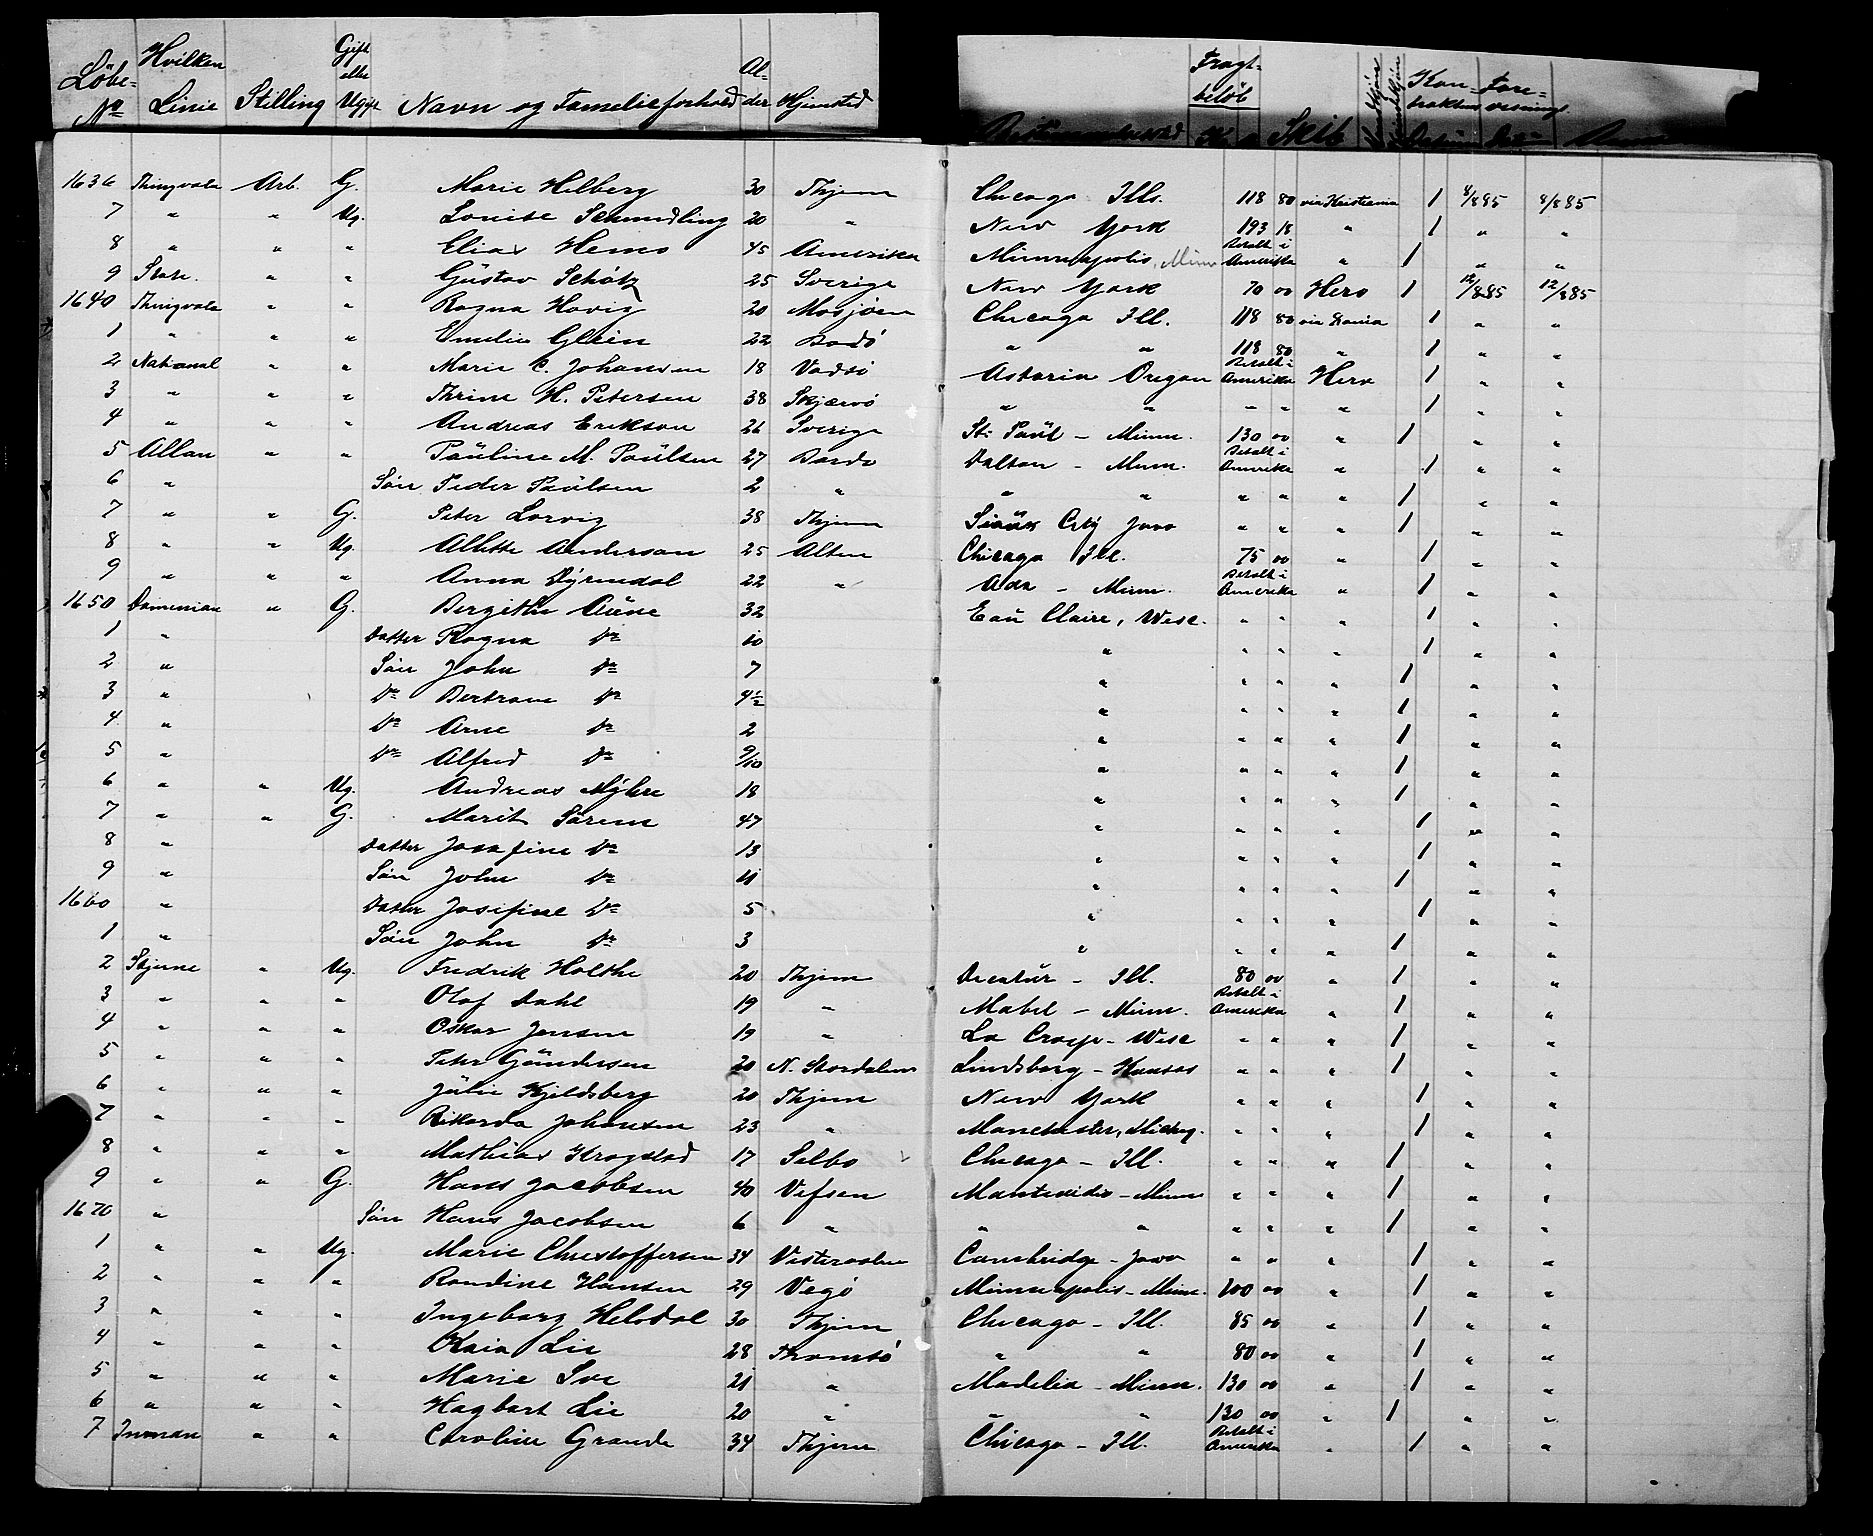 Löbe- No | Hvilken Linie | Stilling | Gift eller Ugift | Navn og Familieforhold | Alder | Hjemsted | Bestemmelsessted | Fragtbelöb K. ø | Skib | Mandkjön | Kvindekjön | Kontraktens Datum | Forevisnings Datum
1636 Thingvalla Arb. G. Marie Helberg 30 Thjem Chicago Ills. 118 80 via Kristiania 1 4/8 85 4/8 85
7 " " Ug. Louise Schmidling 20 " New York 193 18 " 1 " "
8 " " " Elias Hemo 45 Amerika Minneapolis, Minn Betalt i Amerika " 1 " "
9 State. " " Gustav Schötz 25 Sverige New York 70 00 Hero 1 12/8 85 12/8 85
1640 Thingvalla " " Ragna Hovig 20 Mosjöen Chicago Ill. 118 80 via Dania 1 " "
1 " " " Emilie Glein 22 Bodö " " 118 80 " 1 " "
2 National " " Marie C. Johansen 18 Vadsö Astoria Oregon Betalt i Amerika Hero 1 " "
3 " " " Thrine H. Petersen 38 Skjærvö " " " " " 1 " "
4 " " " Andreas Erikson 26 Sverige St. Paul - Minn. 130 00 " 1 " "
5 Allan " " Pauline M. Paulsen 27 Bardo Dalton - Minn. Betalt i Amerika " 1 " "
6 " Sön Peder Paulsen 2 " " " " " " 1 " "
7 " " G. Peter Lorvig 38 Thjem Sioux City Jova " " " 1 " "
8 " " Ug. Allette Anderson 25 Alten Chicago Ill. 75 00 " 1 " "
9 " " " Anna Dyrendal 22 " Ada - Minn. Betalt i Amerika " 1 " "
1650 Dominion " G. Bergithe Aune 32 Eau Claire, Wisc. " " " 1 " "
1 " Datter Ragna Do 10 " " " " 1 " "
2 " Sön John Do 7 " " " " 1 " "
3 " Do Bertram Do 4½ " " " " 1 " "
4 " Do Arne Do 2 " " " " 1 " "
5 " Do Alfred Do 9/10 " " " " 1 " "
6 " " Ug. Andreas Myhre 18 " " " " 1 " "
7 " " G. Marit Sörem 47 " " " " 1 " "
8 " Datter Josefine Do 13 " " " " 1 " "
9 " Sön John Do 11 " " " " 1 " "
1660 " Datter Josefine Do 5 " " " " 1 " "
1 " Sön John Do 3 " " " " 1 " "
2 Stjerne " Ug. Fredrik Holthe 20 Thjem Decatur - Ill. 80 00 " 1 " "
3 " " " Olaf Dahl 19 " Mabel - Minn. Betalt i Amerika " 1 " "
4 " " " Oskar Jensen 19 " La Crosse - Wisc " " " 1 " "
5 " " " Peter Gundersen 20 N. Stordalen Lindsborg - Kansas " " " 1 " "
6 " " " Julie Kjeldsberg 20 Thjem New York " " " 1 " "
7 " " " Rikarda Johansen 23 " Manchester, Michg. " " " 1 " "
8 " " " Mathias Krogstad 17 Selbo Chicago - Ill. " " " 1 " "
9 " " G. Hans Jacobsen 40 Vefsen Montevideo - Minn " " " 1 " "
1670 " Sön Hans Jacobsen 6 " " " " " " 1 " "
1 " " Ug. Marie Christoffersen 34 Vesteraalen Cambridge - Jova " " " 1 " "
2 " " " Randine Hansen 29 Vegö Minneapolis - Minn. 100 00 " 1 " "
3 " " " Ingeborg Helsdal 30 Thjem Chicago - Ill. 85 00 " 1 " "
4 " " " Kaia Lie 28 Thromsö " " 80 00 " 1 " "
5 " " " Marie Lie 21 " Madelia - Minn. 130 00 " 1 " "
6 " " " Hagbart Lie 20 " " " 130 00 " 1 " "
7 Inman " " Caroline Grande 34 Thjem Chicago - Ill. Betalt i Amerika " 1 " "